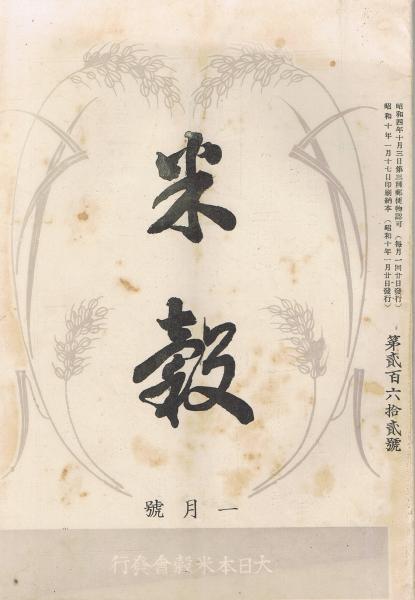 昭和四年十月三日第三種郵便物認可（毎月一回廿日發行）
昭和十年一月十七日印刷納本（昭和十年一月廿日發行）
第貳百六拾貳號
米穀
一月號
大日本米穀會發行